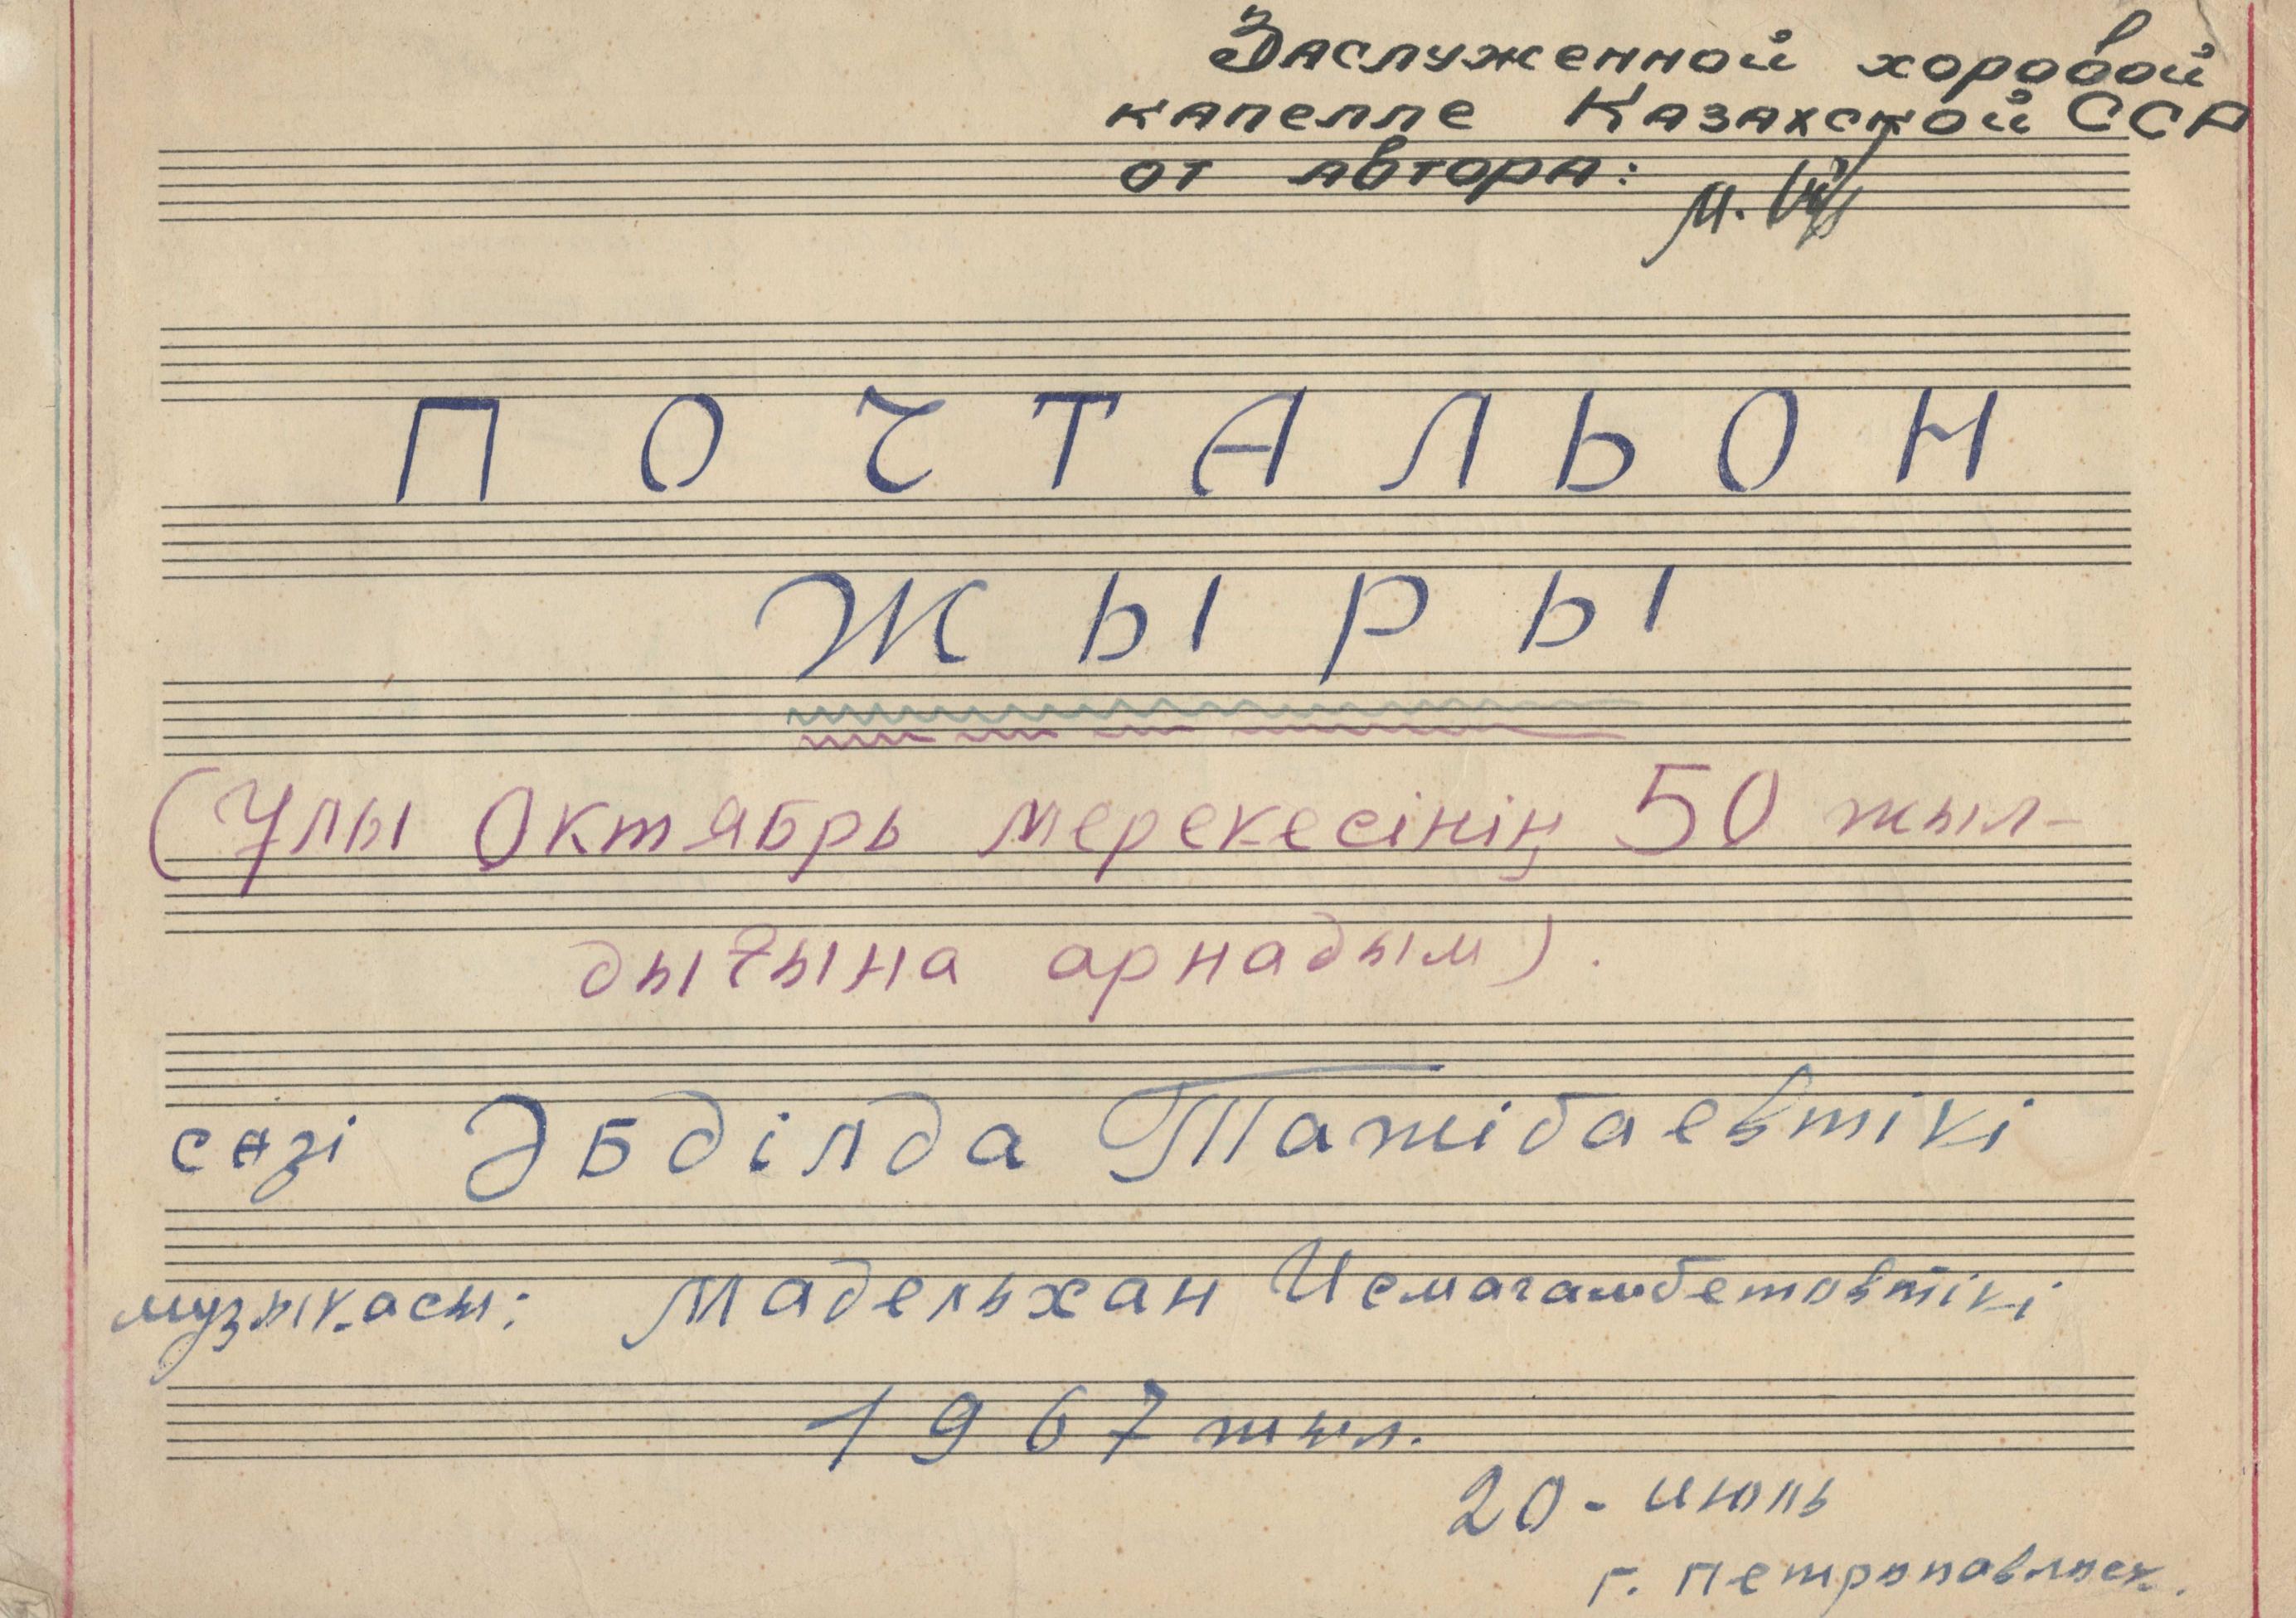 Заслуженной хоровой
капелле Казахской ССР
от автора:
ПОЧТАЛЬОН
ЖЫРЫ
(Ұлы Октябрь мерекесінің 50 жыл-
дығына арнадым).
сөзі Әбділда Тажібаевтікі
музыкасы: Мадельхан Исмагамбетовтікі
1967 жыл.
20-июль
г. Петропавловск.